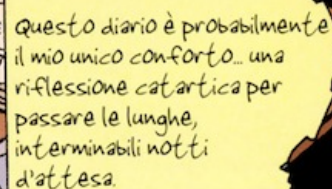 Questo diario è probabilmente
il mio unico conforto... una
riflessione catartica per
passare le lunghe,
interminabili notti
d'attesa.